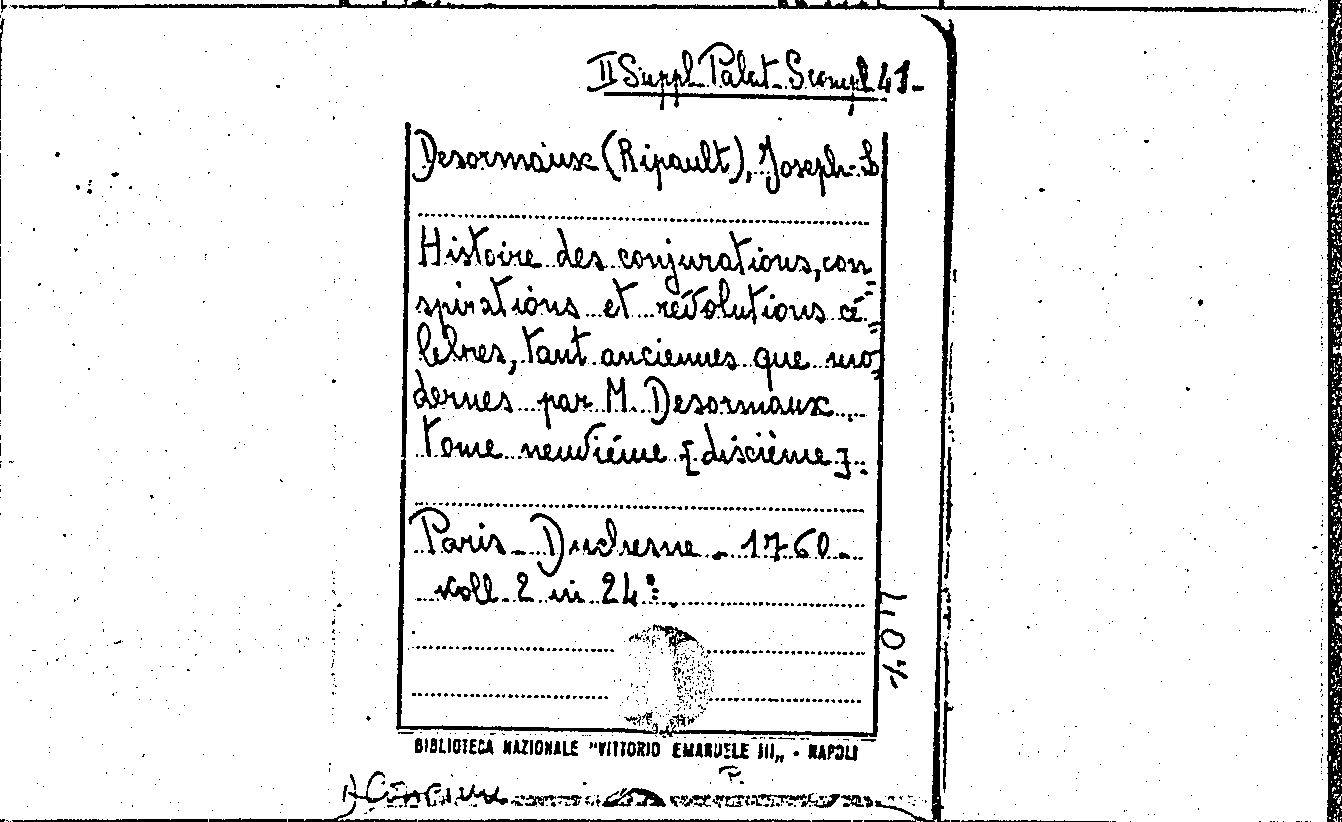 II Suppl. Palat. Scompl 41-
Desormaux (Ripault), Joseph-L
Histoire des conjurations, con=
spirations et révolutions cé=
lebres, tant anciennes que mo=
dernes par M. Desormaux
tome neuviéme [dixième].
Paris - Duchesne - 1760 -
voll 2 in 24°.
BIBLIOTECA NAZIONALE "VITTORIO EMANUELE III„ - NAPOLI